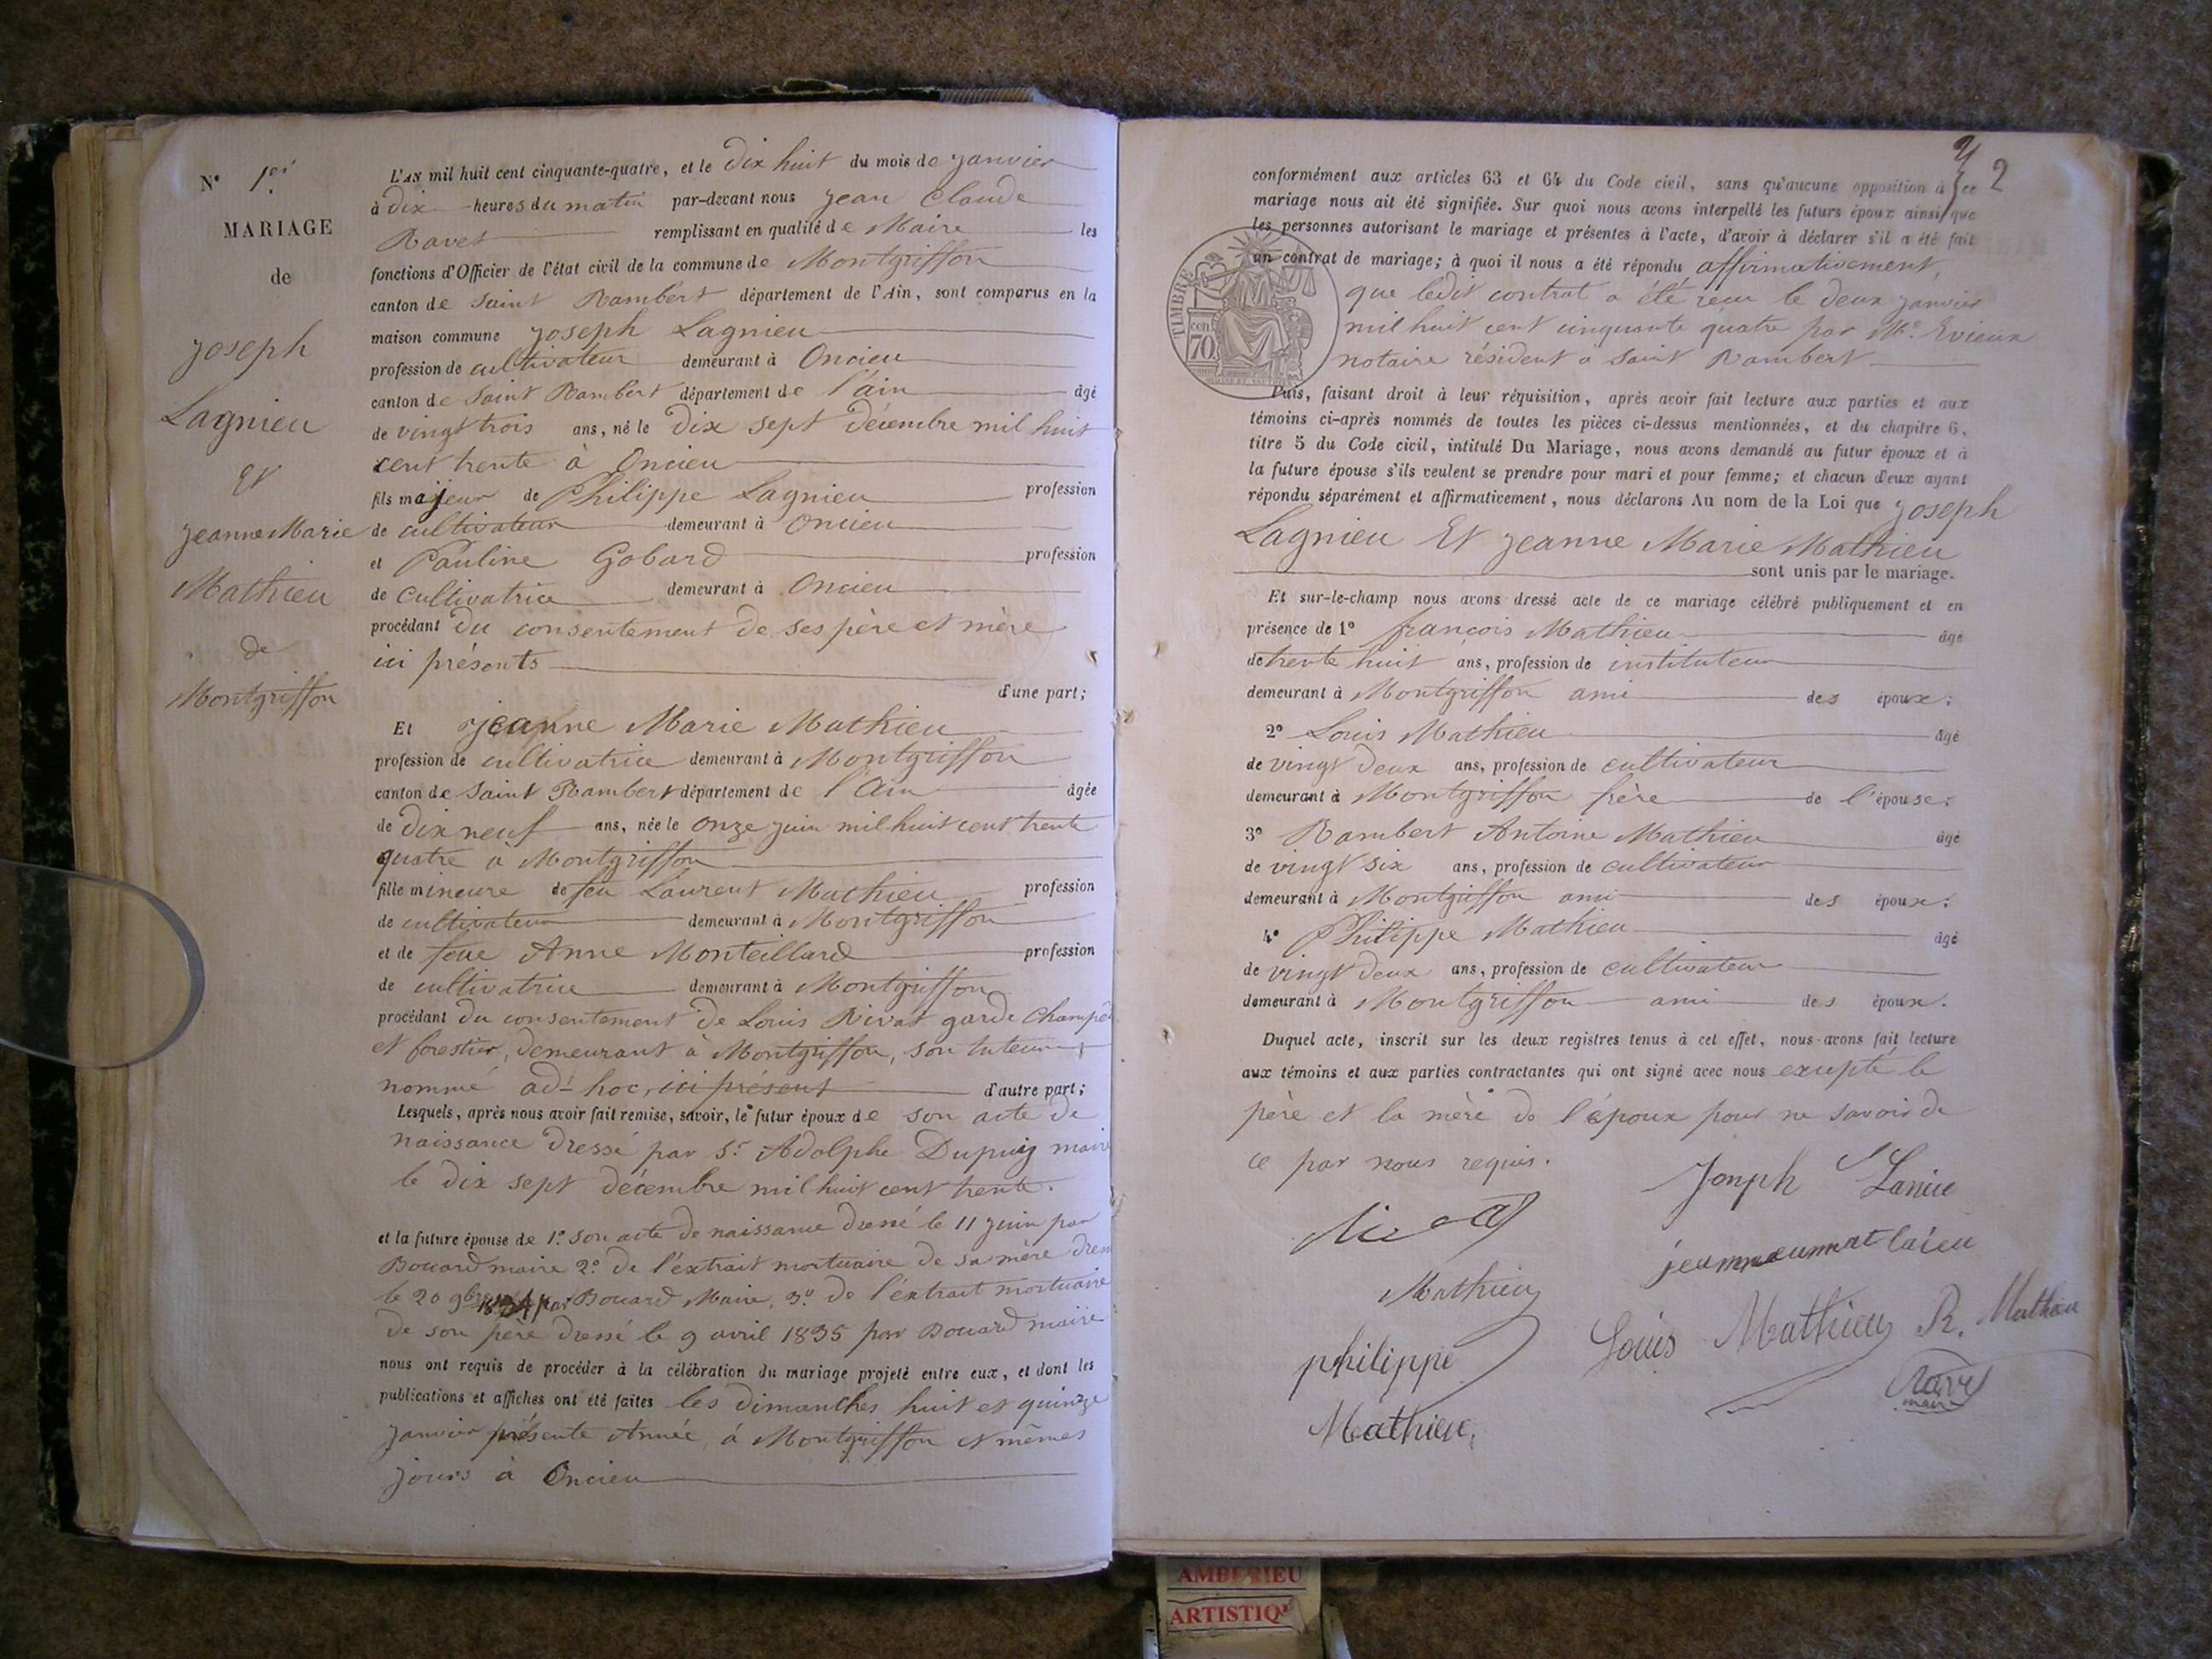 N° 1er
MARIAGE
de
Joseph
Lagnieu
Et
Jeanne Marie
Mathieu
de
Montgriffon
L'AN mil huit cent cinquante-quatre, et le dix huit du mois de janvier
à dix heures du matin par-devant nous Jean Claude
Ravet remplissant en qualité de Maire les
fonctions d'Officier de l'état civil de la commune de Montgriffon
canton de Saint Rambert département de l'Ain, sont comparus en la
maison commune Joseph Lagnieu
profession de cultivateur demeurant à Oncieu
canton de Saint Rambert département de l'ain âgé
de vingt trois ans, né le dix sept décembre mil huit
cent trente à Oncieu
fils majeur de Philippe Lagnieu profession
de cultivateur demeurant à Oncieu
et Pauline Gobard profession
de Cultivatrice demeurant à Oncieu
procédant du consentement de ses père et mère
ici présents
d'une part;
Et Jeanne Marie Mathieu
profession de cultivatrice demeurant à Montgriffon
canton de Saint Rambert département de l'Ain âgée
de dix neuf ans, née le onze juin mil huit cent trente
quatre à Montgriffon
fille mineure de feu Laurent Mathieu profession
de cultivateur demeurant à Montgriffon
et de feue Anne Monteillard profession
de cultivatrice demeurant à Montgriffon
procédant du consentement de Louis Rivat garde Champê
et forestier, demeurant à Montgriffon, son tuteur
nommé ad-hoc, ici présent d'autre part;
Lesquels, après nous avoir fait remise, savoir, le futur époux de son acte de
naissance dressé par Sr Adolphe Dupuiz maire
le dix sept décembre mil huit cent trente.
et la future épouse de 1° son acte de naissance dressé le 11 juin par
Bouard maire 2° de l'extrait mortuaire de sa mère
le 20 9bre 1834 par Bouard Maire, 3° de l'extrait mortuaire
de son père dressé le 9 avril 1835 par Bouard maire
nous ont requis de procéder à la célébration du mariage projeté entre eux, et dont les
publications et affiches ont été faites les dimanches huit et quinze
Janvier présente Année, à Montgriffon et mêmes
jours à Oncieu
2
conformément aux articles 63 et 64 du Code civil, sans qu'aucune opposition à ce
mariage nous ait été signifiée. Sur quoi nous avons interpellé les futurs époux ainsi que
les personnes autorisant le mariage et présentes à l'acte, d'avoir à déclarer s'il a été fait
un contrat de mariage; à quoi il nous a été répondu affirmativement,
que ledit contrat a été reçu le deux janvier
mil huit cent cinquante quatre par Me Evieux
notaire résident à Saint Rambert
TIMBRE
cen.
70
Puis, faisant droit à leur réquisition, après avoir fait lecture aux parties et aux
témoins ci-après nommés de toutes les pièces ci-dessus mentionnées, et du chapitre 6,
titre 5 du Code civil, intitulé Du Mariage, nous avons demandé au futur époux et à
la future épouse s'ils veulent se prendre pour mari et pour femme; et chacun d'eux ayant
répondu séparément et affirmativement, nous déclarons Au nom de la Loi que Joseph
Lagnieu Et Jeanne Marie Mathieu
sont unis par le mariage.
Et sur-le-champ nous avons dressé acte de ce mariage célébré publiquement et en
présence de 1° françois Mathieu âgé
de trente huit ans, profession de instituteur
demeurant à Montgriffon ami des époux;
2° Louis Mathieu âgé
de vingt deux ans, profession de cultivateur
demeurant à Montgriffon frère de l'épouse;
3° Rambert Antoine Mathieu âgé
de vingt six ans, profession de cultivateur
demeurant à Montgriffon ami des époux;
4° Philippe Mathieu âgé
de vingt deux ans, profession de cultivateur
demeurant à Montgriffon ami des époux.
Duquel acte, inscrit sur les deux registres tenus à cet effet, nous avons fait lecture
aux témoins et aux parties contractantes qui ont signé avec nous excepté le
père et la mère de l'époux pour ne savoir de
ce par nous requis.
Joseph Laniue
Mathieu
Louis Mathieu R. Mathieu
philippe
Ravet
maire
Mathieu
AMBERIEU
ARTISTIQ